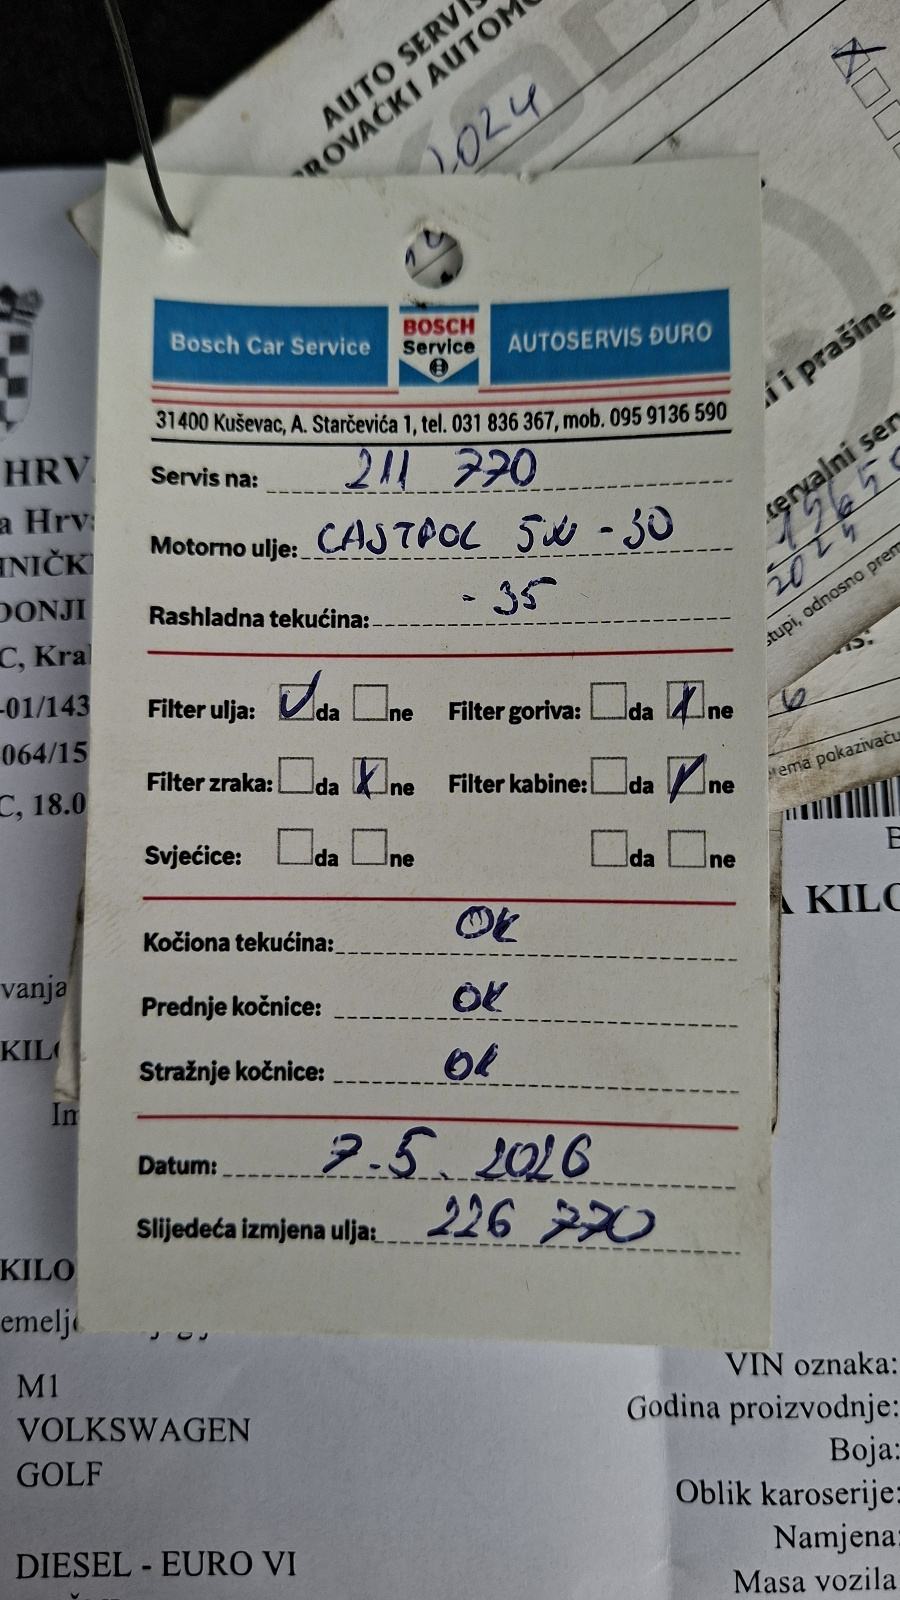 AUTO SERVIS
PROVAČKI AUTOMO
2024
Bosch Car Service
BOSCH
Service
AUTOSERVIS ĐURO
31400 Kuševac, A. Starčevića 1, tel. 031 836 367, mob. 095 9136 590
Servis na: 211 770
Motorno ulje: CASTROL 5W-30
Rashladna tekućina: -35
Filter ulja: da ne Filter goriva: da ne
Filter zraka: da ne Filter kabine: da ne
Svjećice: da ne da ne
Kočiona tekućina: OK
Prednje kočnice: OK
Stražnje kočnice: OK
Datum: 7.5.2026
Slijedeća izmjena ulja: 226 770
HRV
a Hrv
HNIČK
DONJI
C, Kral
-01/143
064/15
C, 18.0
vanja
KILO
KILO
emelj
M1
VOLKSWAGEN
GOLF
DIESEL - EURO VI
i i prašine
tervalni ser
2024
stupi, odnosno prem
ema pokazivaču
A KILO
VIN oznaka:
Godina proizvodnje:
Boja:
Oblik karoserije:
Namjena:
Masa vozila